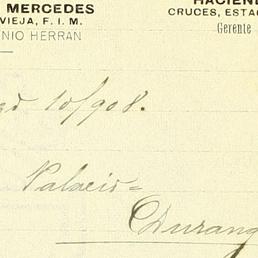 MERCEDES
HACIEN
VIEJA, F. I. M.
CRUCES, ESTA
NIO HERRAN
Gerente
10/908.
Palacio=
Durang